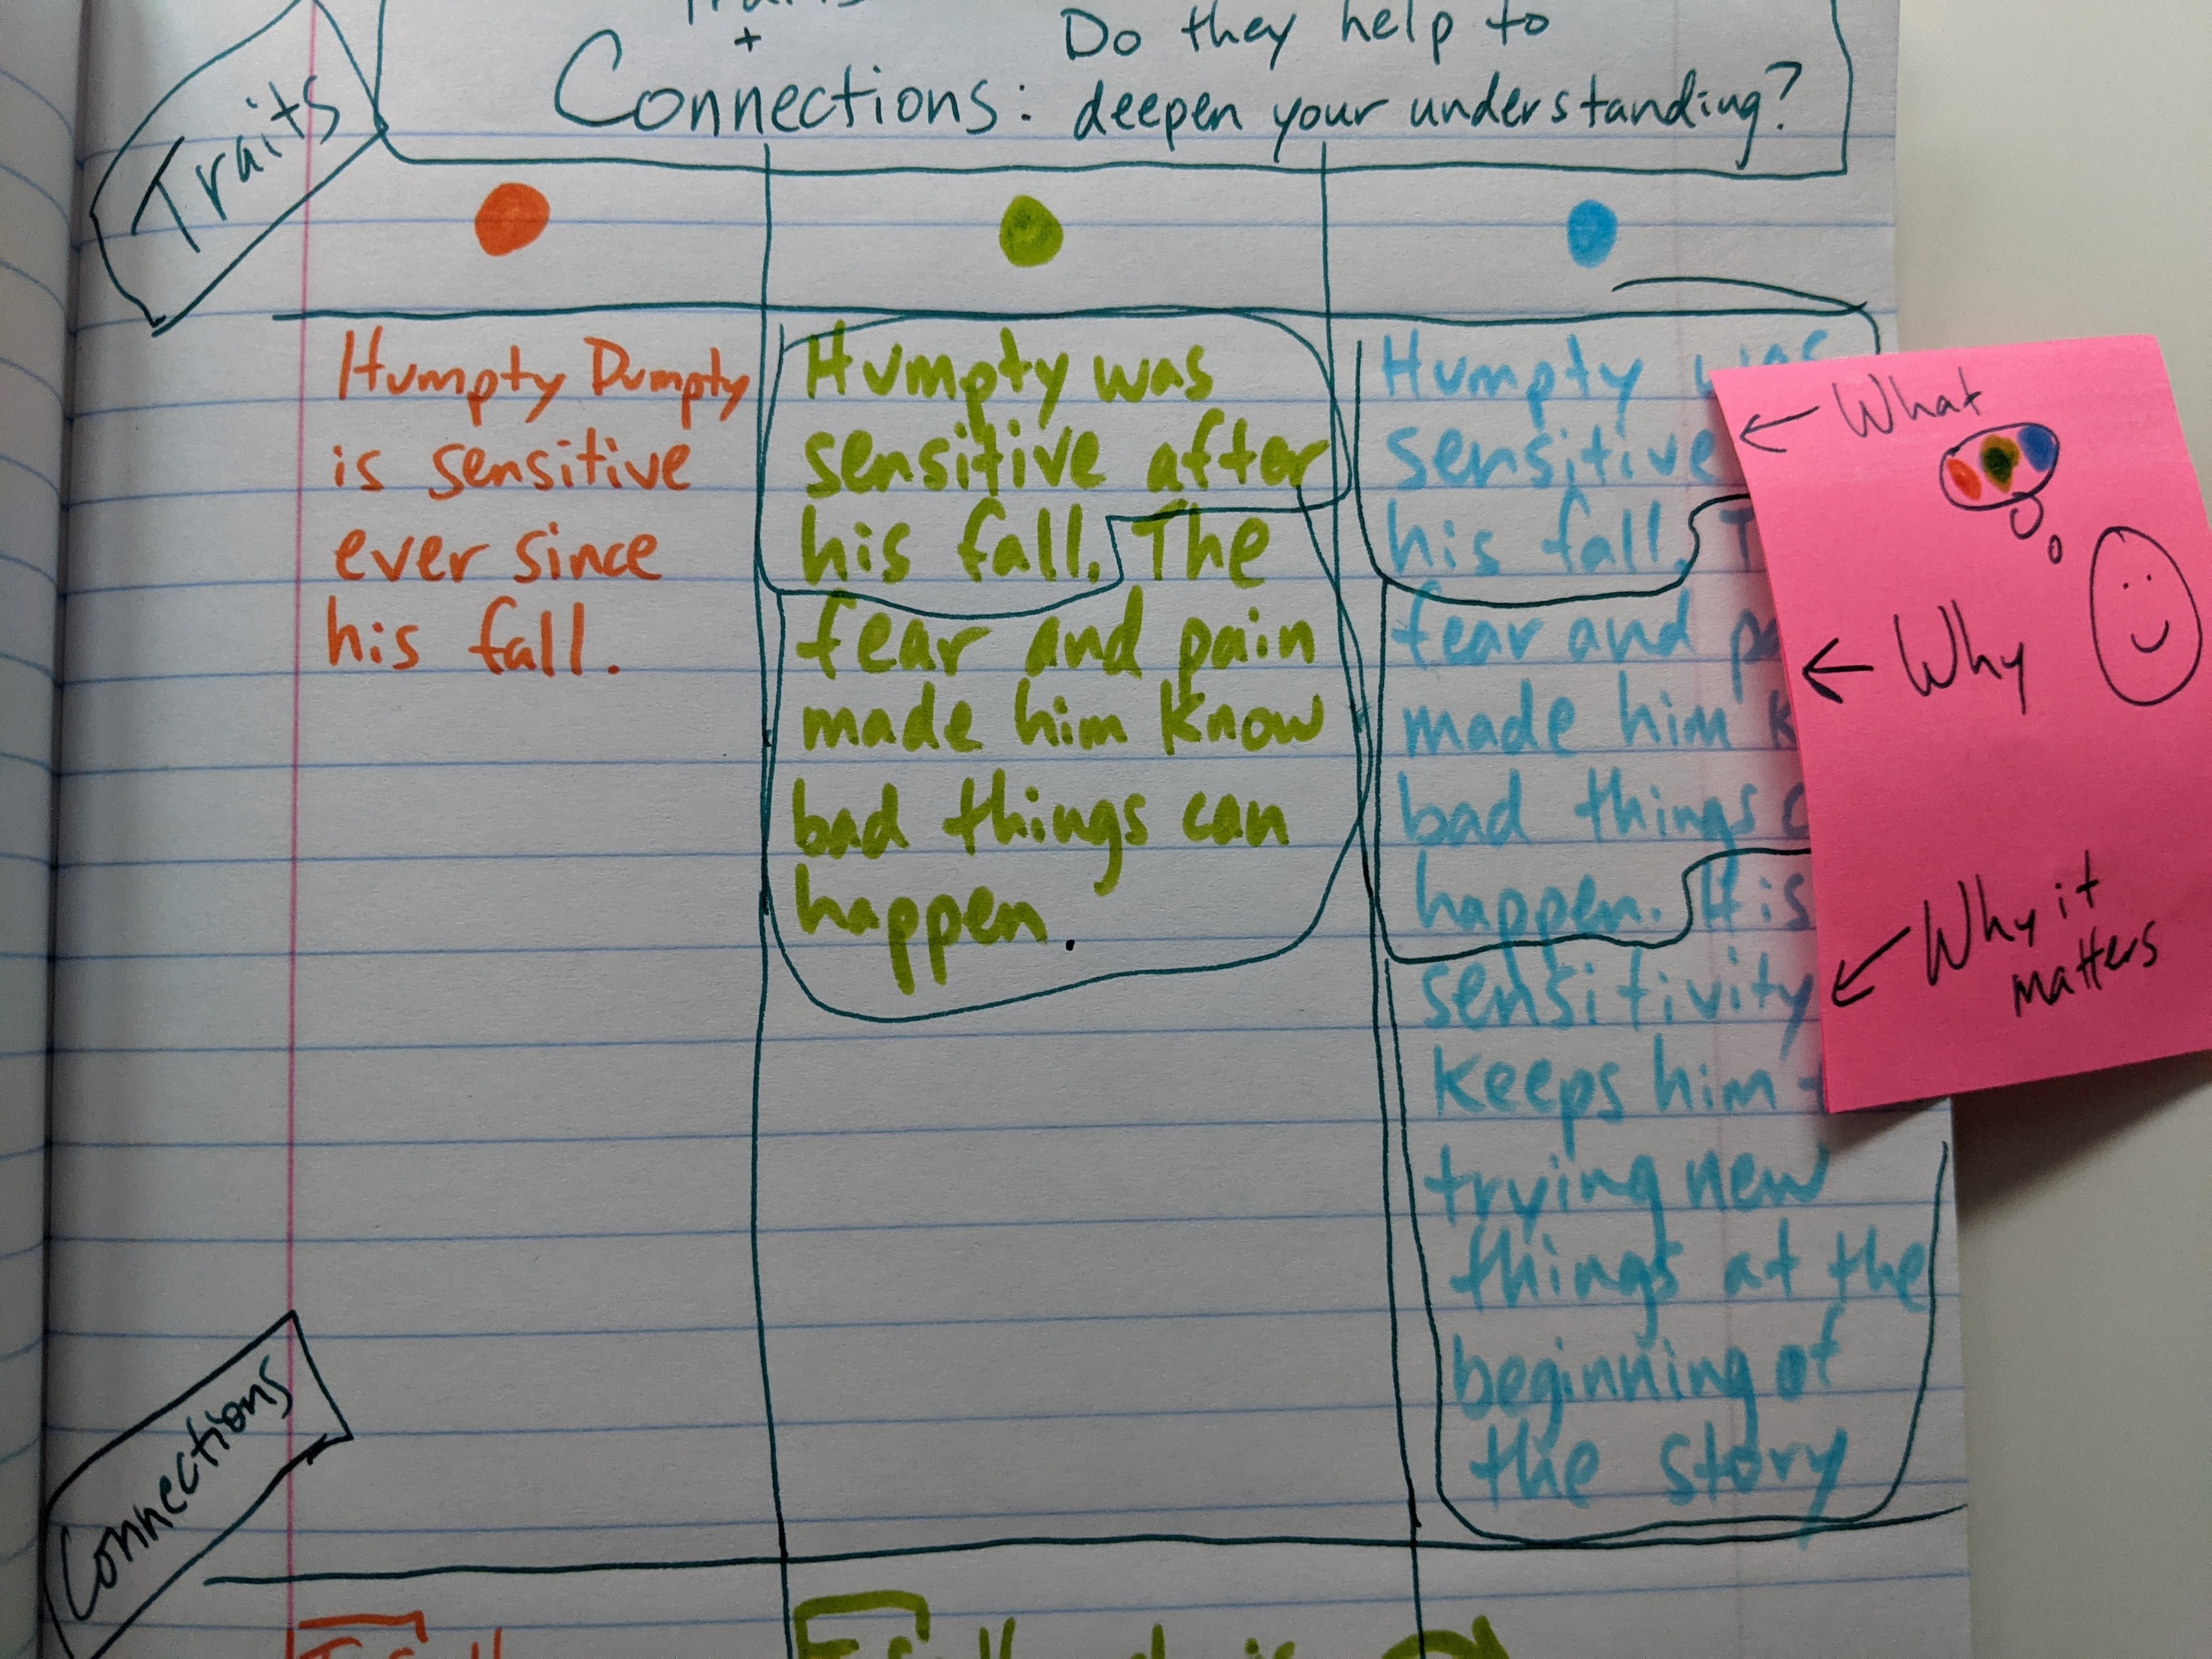 +
Do they help to
Connections: deepen your understanding?
Traits
Humpty Dumpty
is sensitive
ever since
his fall.
Humpty was
sensitive after
his fall. The
fear and pain
made him know
bad things can
happen.
Humpty was
sensitive
his fall.
fear and
made him
bad things
happen. His
sensitivity
keeps him
trying new
things at the
beginning of
the story
What
Why
Why it
matters
Connections